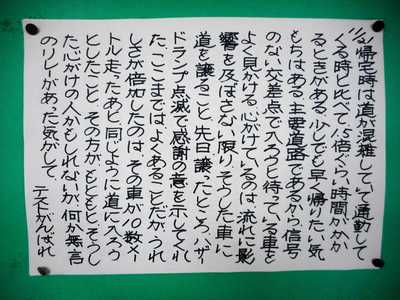 帰宅時は道が混雑していて通勤して
くる時と比べて1.5倍ぐらい時間がかか
るときがある、少しでも早く帰りたい気
もちはある、主要道路であるから信号
のない交差点で入ろうと待っている車を
よく見かける、心がけているのは、流れに影
響を及ぼさない限り、そうした車に
道を譲ること、先日譲ったところ、ハザー
ドランプ点滅で感謝の意を示してくれ
た、ここまではよくあることだが、うれ
しさが倍加したのは、その車が、数メー
トル走ったあと、同じように道に入ろう
としたこと、その方が、もともと、そうし
た心がけの人かもしれないが、何か無言
のリレーがあった気がして、テストがんばれ